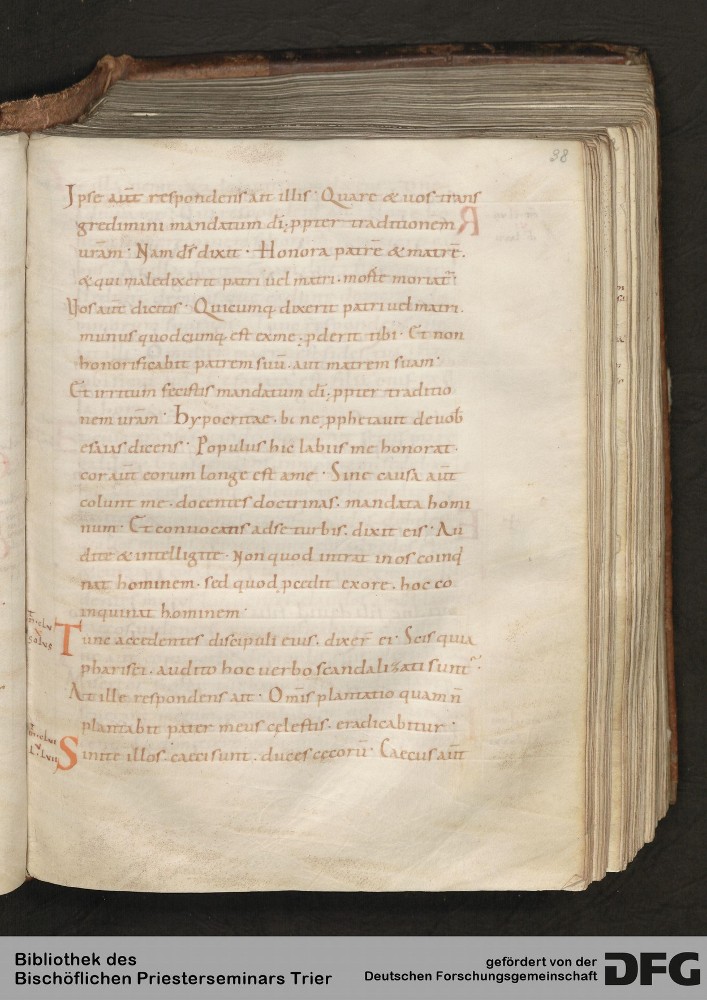 38
Ipse aut̄ respondens ait illis · Quare & uos trans
gredimini mandatum dī · ꝓpter traditionem
uram̄ · Nam d̄s dixit · Honora patrē & matrē ·
& qui maledixerit patri uel matri · morte moriat᷑ ·
Uos aut̄ dicitis · Quicumq; dixerit patri uel matri ·
munus quodcumq; est ex me · ꝓderit tibi · Et non
honorificabit patrem suū · aut matrem suam ·
Et irritum fecistis mandatum dī · ꝓpter traditio
nem uram̄ · hypocritae · bene ꝓphetauit de uob̄
esaias dicens · Populus hic labiis me honorat ·
cor aut̄ eorum longe est ame · Sine causa aut̄
colunt me · docentes doctrinas · mandata homi
num · Et conuocatis adse turbis · dixit eis · Au
dite & intelligite · Non quod intrat in os coinq̄
nat hominem · sed quod ꝓcedit exore · hoc co
inquinat hominem ·
Tunc accedentes discipuli eius · dixer̄ ei · Scis quia
pharisei · audito hoc uerbo scandalizati sunt ·
At ille respondens ait · Om̄is plantatio quam ñ
plantabit pater meus cęlestis · eradicabitur ·
Sinite illos · caeci sunt · duces cecorū · Caecus aut̄
Bibliothek des
Bischöflichen Priesterseminars Trier
gefördert von der
Deutschen Forschungsgemeinschaft
DFG